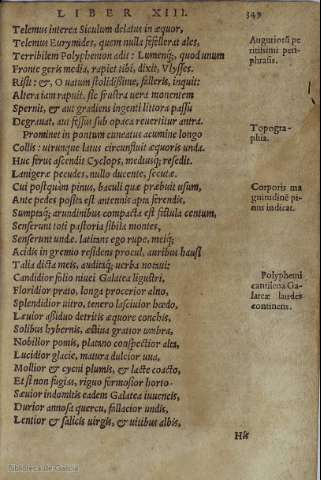 LIBER XIII.
349
Telemus interea Siculum delatus in æquor,
Telemus Eurymides, quem nulla fefellerat ales,
Terribilem Polyphemon adit: Lumenq́;, quod unum
Fronte geris media, rapiet tibi, dixit, Vlysses.
Risit: &, O uatum stolidissime, falleris, inquit:
Altera iam rapuit. sic frustra uera monentem
Spernit, & aut gradiens ingenti littora passu
Degrauat, aut fessus sub opaca reuertitur antra.
Prominet in pontum cuneatus acumine longo
Collis: utrunque latus circumfluit æquoris unda.
Huc ferus ascendit Cyclops, mediusq; resedit.
Lanigeræ pecudes, nullo ducente, secutæ.
Cui postquàm pinus, baculi quæ præbuit usum,
Ante pedes posita est antennis apta ferendis,
Sumptaq; arundinibus compacta est fistula centum,
Senserunt toti pastoria sibila montes,
Senserunt undæ. latitans ego rupe, meiq;
Acidis in gremio residens procul, auribus hausi
Talia dicta meis, auditaq; uerba notaui:
Candidior folio niuei Galatea ligustri,
Floridior prato, longa procerior alno,
Splendidior uitro, tenero lasciuior hœdo,
Læuior assiduo detritis æquore conchis,
Solibus hybernis, æstiua gratior umbra,
Nobilior pomis, platano conspectior alta,
Lucidior glacie, matura dulcior uua,
Mollior & cycni plumis, & lacte coacto,
Et si non fugias, riguo formosior horto.
Sæuior indomitis eadem Galatea iuuencis,
Durior annosa quercu, fallacior undis,
Lentior & salicis uirgis, & uitibus albis,
His
Auguriorū pe
ritissimi peri-
phrasis.
Topogra-
phia.
Corporis ma
gnitudinē pi-
nus indicat.
Polyphemi
cantilena Ga-
lateæ laudes
continens.
Biblioteca de Galicia